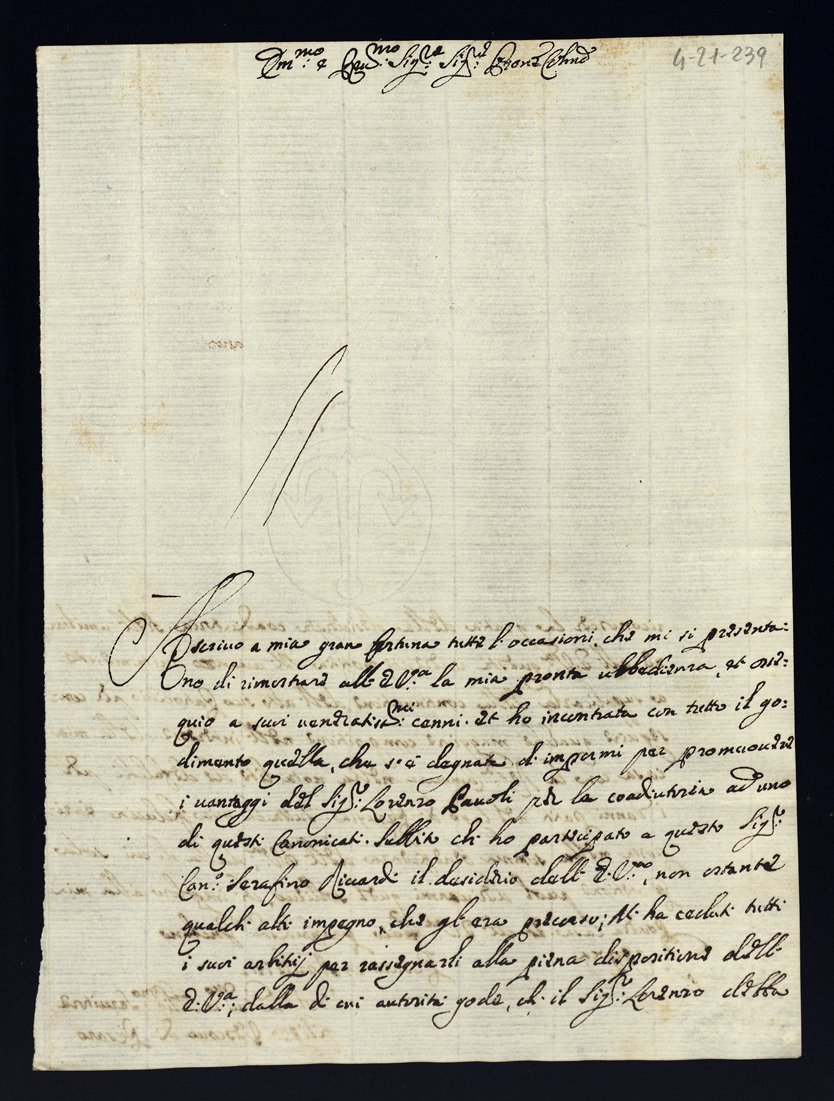 Em.mo e Rev.mo Sig.re Sig.re Prone Col.mo
4-21-239
Ascrivo a mia gran fortuna tutte l'occasioni, che mi si presenta:
no di rimostrare all'E.V.a la mia pronta ubbedienza, et osse:
quio a suoi veneratiss.mi cenni. et ho incontrata con tutto il go:
dimento quella, che s'è degnata d'impormi per promuovere
i vantaggi del Sig.r Lorenzo Pauoli per la coadiutoria ad uno
di questi Canonicati. Subbito che ho participato a questo Sig.r
Can.o Serafino Riccardi il desiderio dell'E.V.ra, non ostante
qualch'altro impegno, che gl'era precorso; M'ha ceduti tutti
i suoi arbitrij per rassegnarli alla piena dispositione dell'
E.V.a; dalla di cui autorità gode, ch'il Sig.r Lorenzo debba